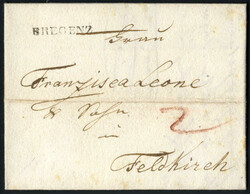 BREGENZ
Frau
Franzisca Leone
& Sohn
in
Feldkirch
2